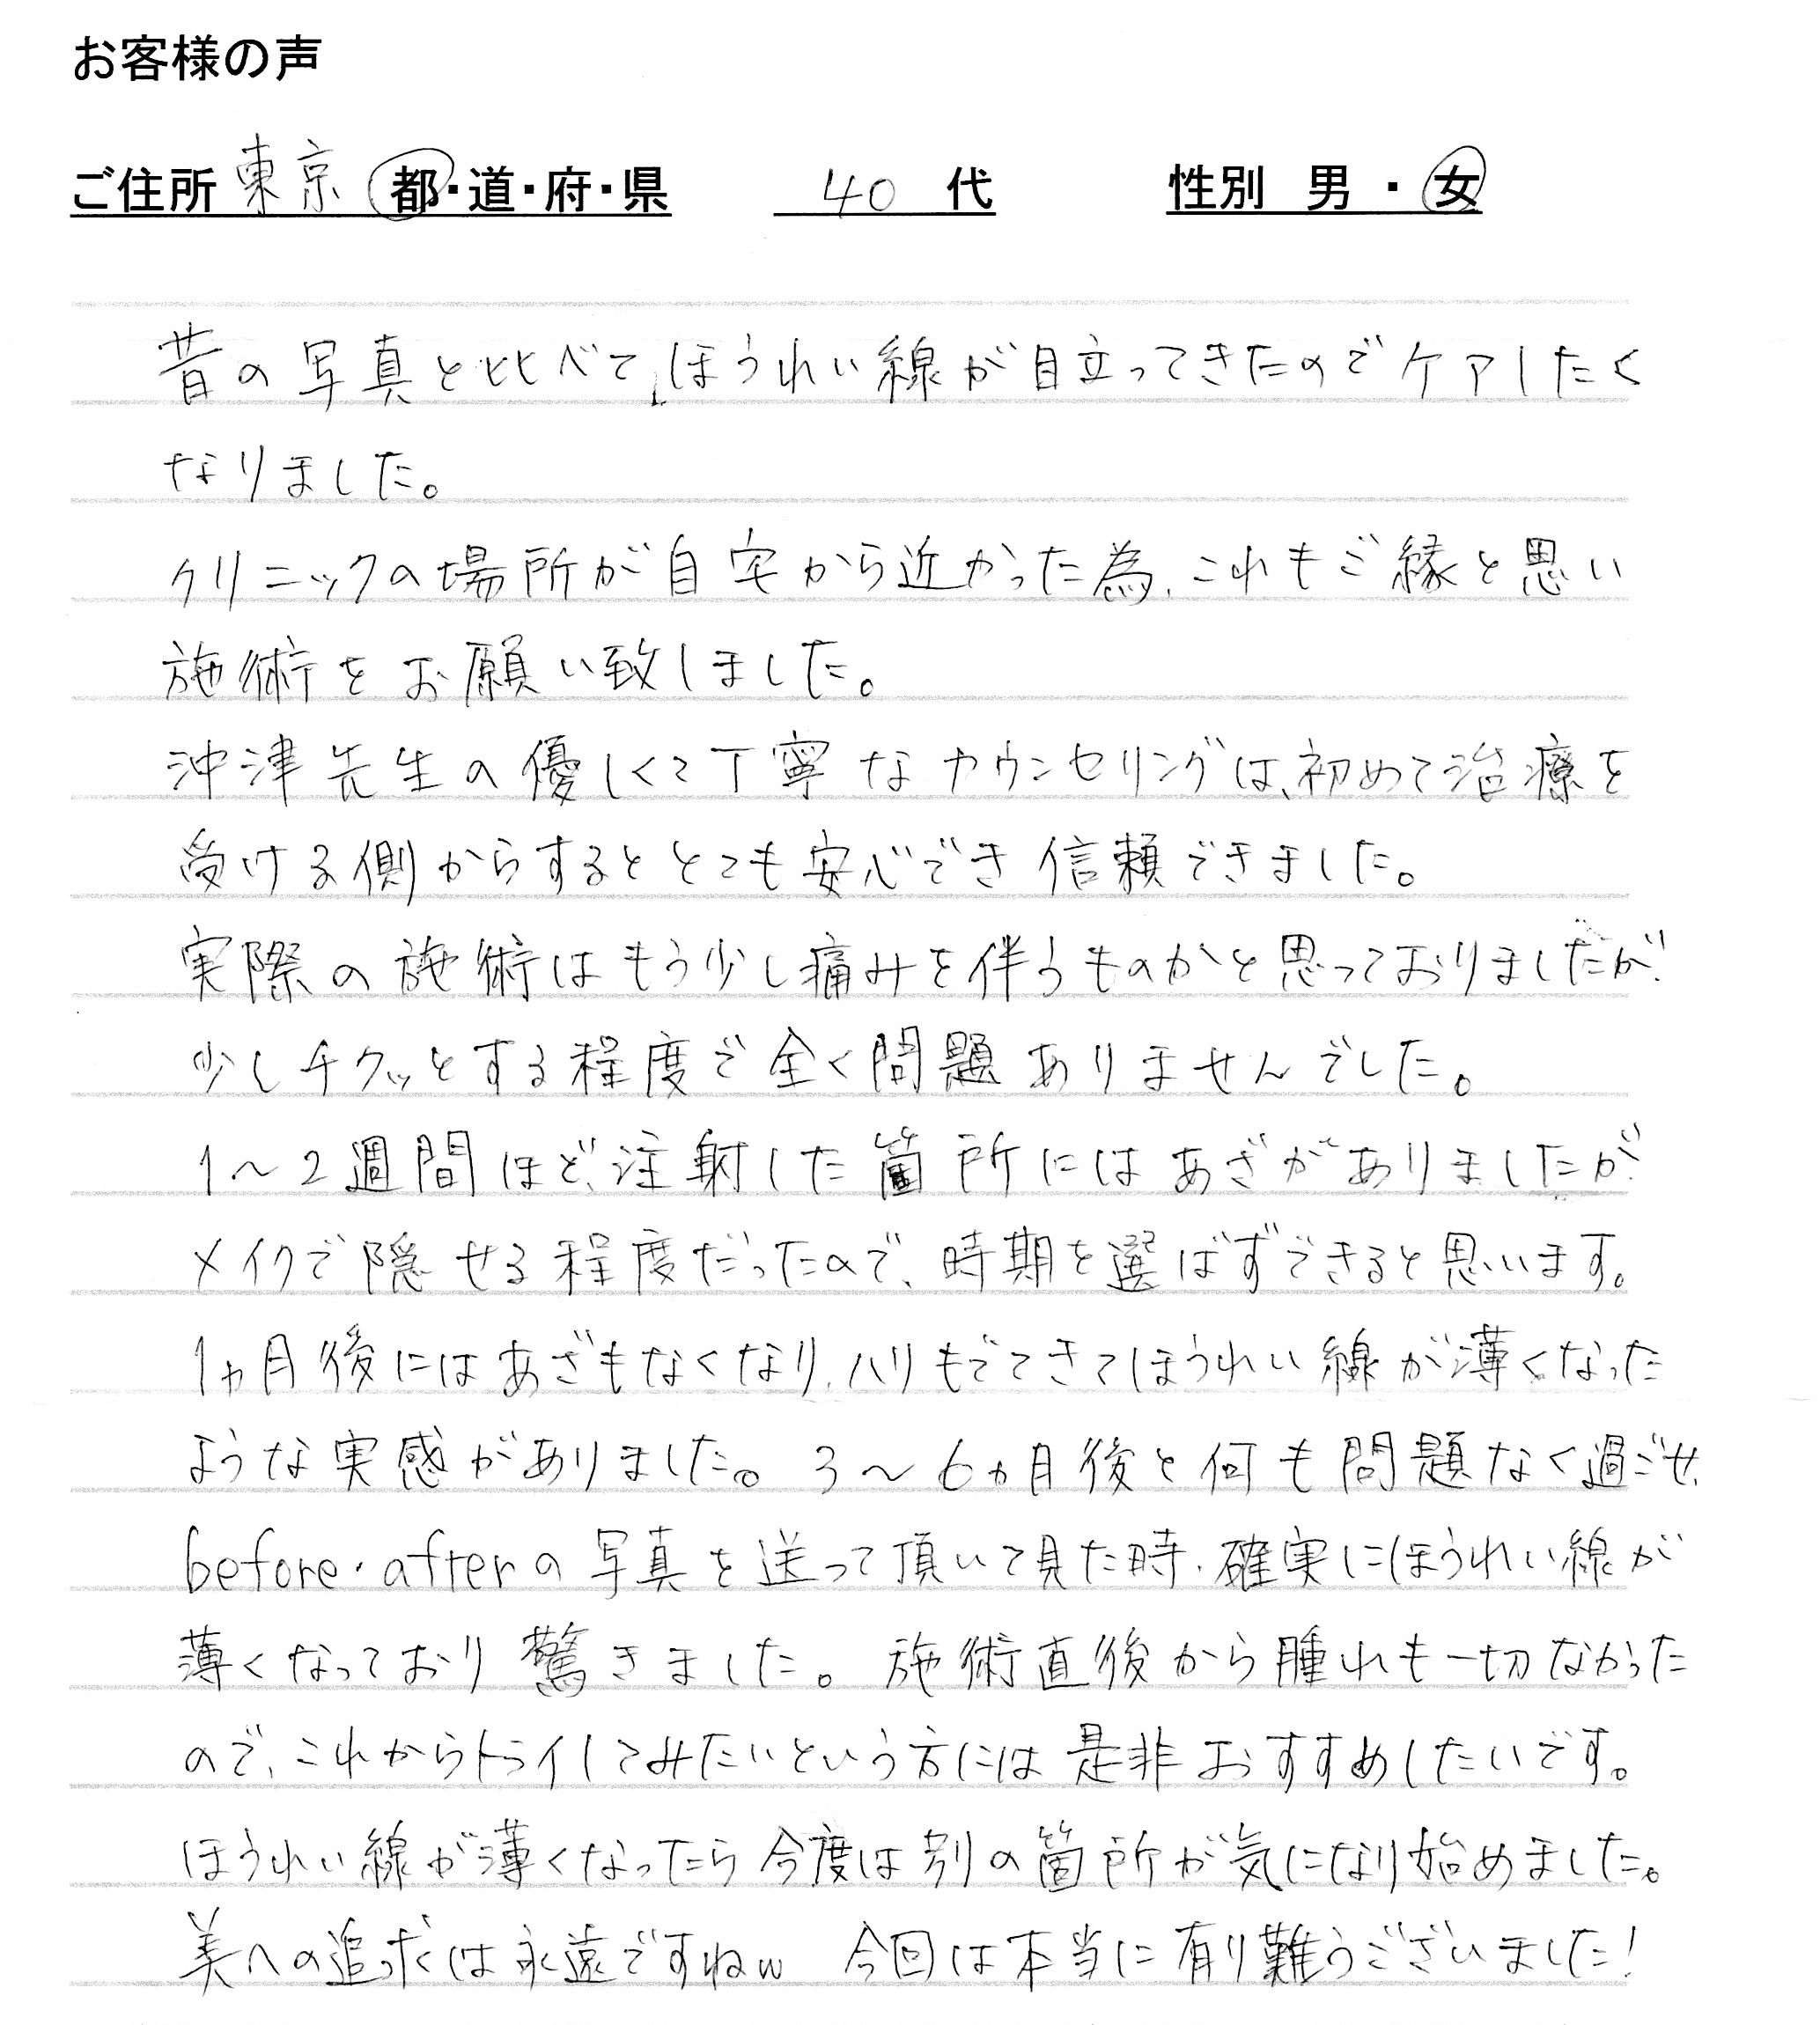 お客様の声
ご住所 東京 都・道・府・県 40 代 性別 男 ・ 女
昔の写真と比べて、ほうれい線が目立ってきたのでケアしたく
なりました。
クリニックの場所が自宅から近かった為、これもご縁と思い
施術をお願い致しました。
沖津先生の優しくて丁寧なカウンセリングは、初めて治療を
受ける側からするととても安心でき信頼できました。
実際の施術はもう少し痛みを伴うものかと思っておりましたが、
少しチクッとする程度で全く問題ありませんでした。
1〜2週間ほど、注射した箇所にはあざがありましたが、
メイクで隠せる程度だったので、時期を選ばずできると思います。
1ヵ月後にはあざもなくなり、ハリもでてきてほうれい線が薄くなった
ような実感がありました。3〜6ヵ月後と何も問題なく過ごせ、
before・afterの写真を送って頂いて見た時、確実にほうれい線が
薄くなっており驚きました。施術直後から腫れも一切なかった
ので、これからトライしてみたいという方には是非おすすめしたいです。
ほうれい線が薄くなったら今度は別の箇所が気になり始めました。
美への追求は永遠ですねw 今回は本当に有り難うございました!